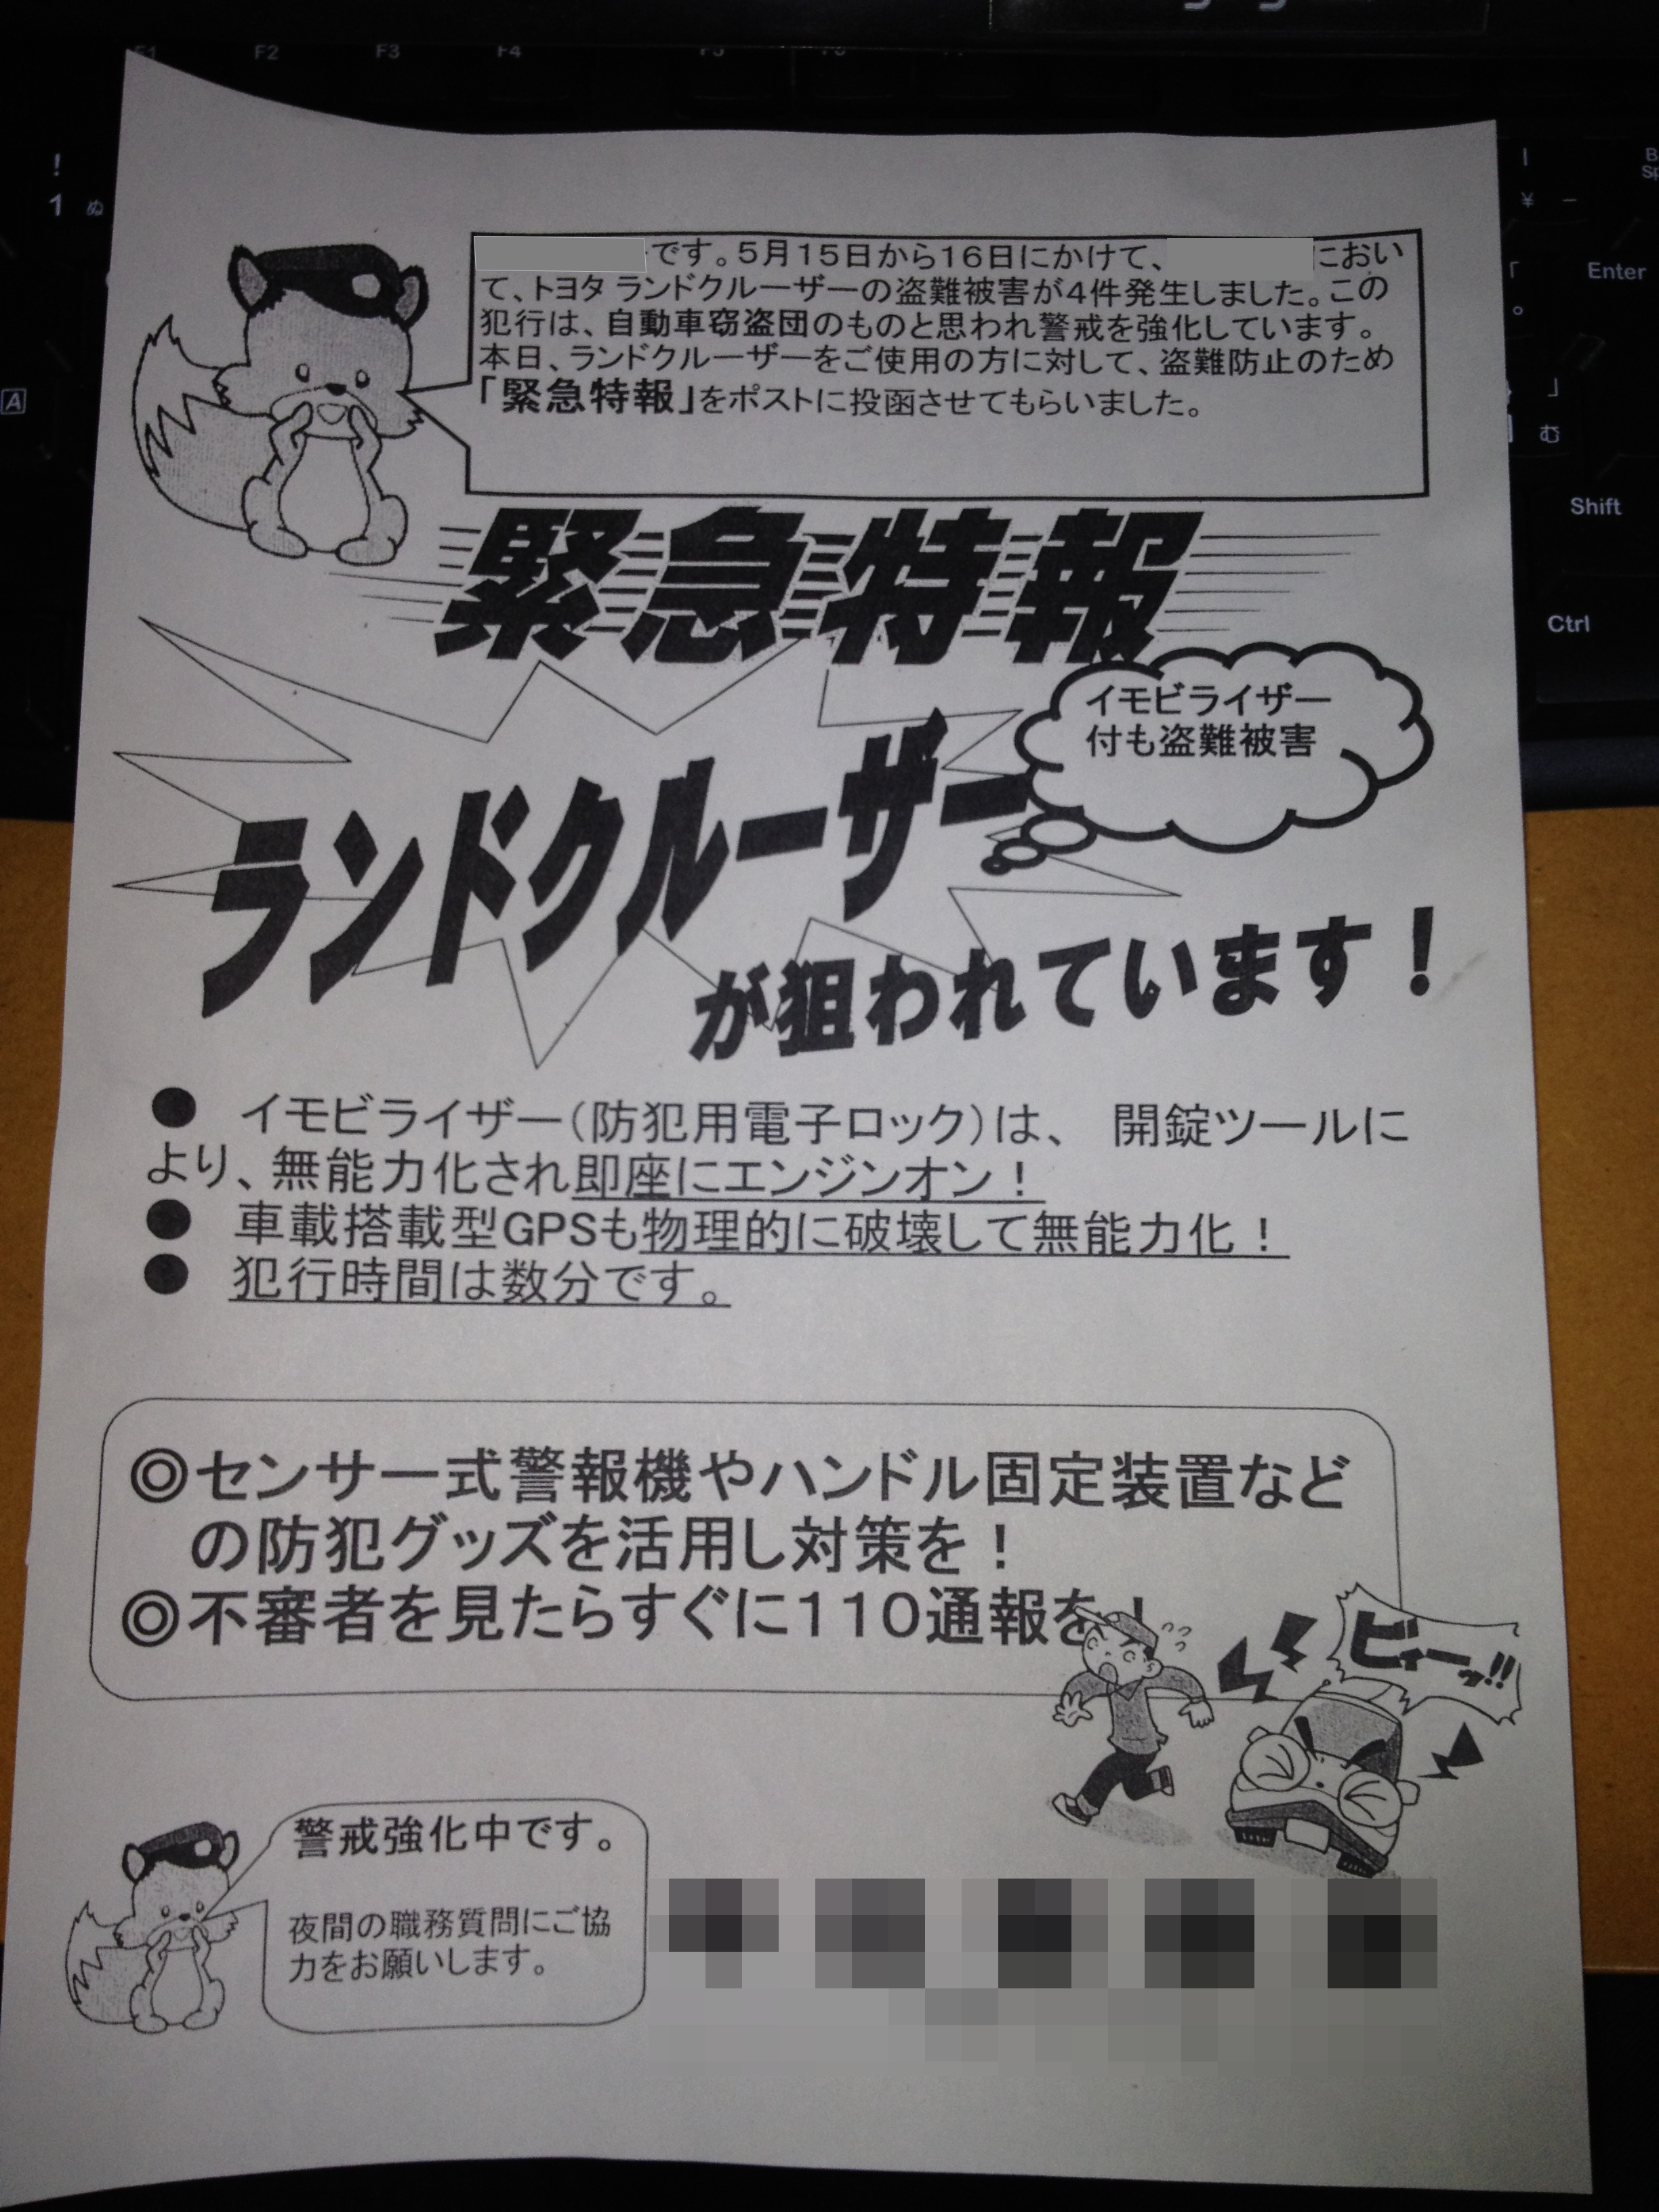 です。５月１５日から１６日にかけて、　　　におい
て、トヨタ ランドクルーザーの盗難被害が４件発生しました。この
犯行は、自動車窃盗団のものと思われ警戒を強化しています。
本日、ランドクルーザーをご使用の方に対して、盗難防止のため
「緊急特報」をポストに投函させてもらいました。
緊急特報
イモビライザー
付も盗難被害
ランドクルーザー
が狙われています！
● イモビライザー（防犯用電子ロック）は、 開錠ツールに
より、無能力化され即座にエンジンオン！
● 車載搭載型GPSも物理的に破壊して無能力化！
● 犯行時間は数分です。
◎センサー式警報機やハンドル固定装置など
の防犯グッズを活用し対策を！
◎不審者を見たらすぐに１１０通報を！
ビィーッ!!
警戒強化中です。
夜間の職務質問にご協
力をお願いします。
F1 F2 F3 F4 F5
!
1 ぬ
A
¥ −
Enter
」
む
Shift
Ctrl